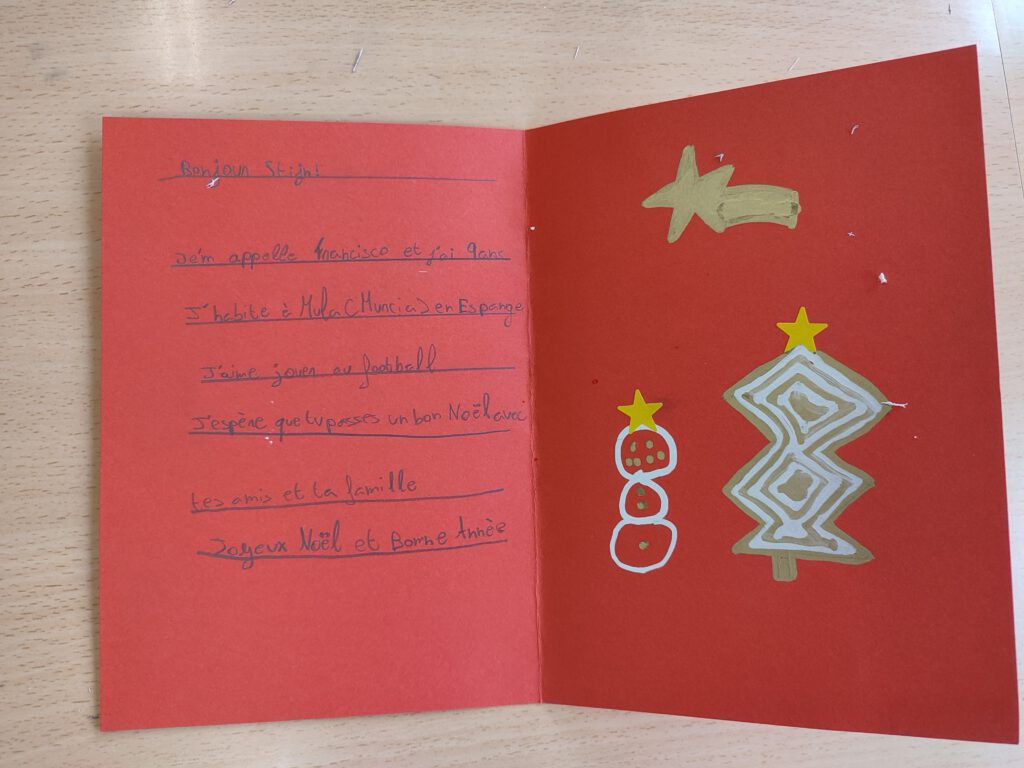 Bonjour Stijn!
Je'm appelle francisco et j'ai 9ans
J'habite à Mula (Murcia) en Espange
J'aime jouer au football
J'espère que tu passes un bon Noël avec
tes amis et ta famille
Joyeux Noël et Bonne Année